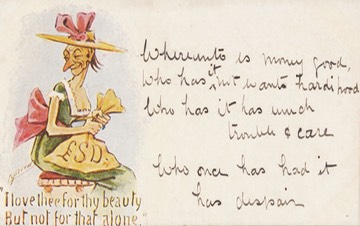 Whereunto is money good,
Who has it not wants hardihood
Who has it has much
trouble & care
Who once has had it
has despair
£.S.D.
"I love thee for thy beauty
But not for that alone."